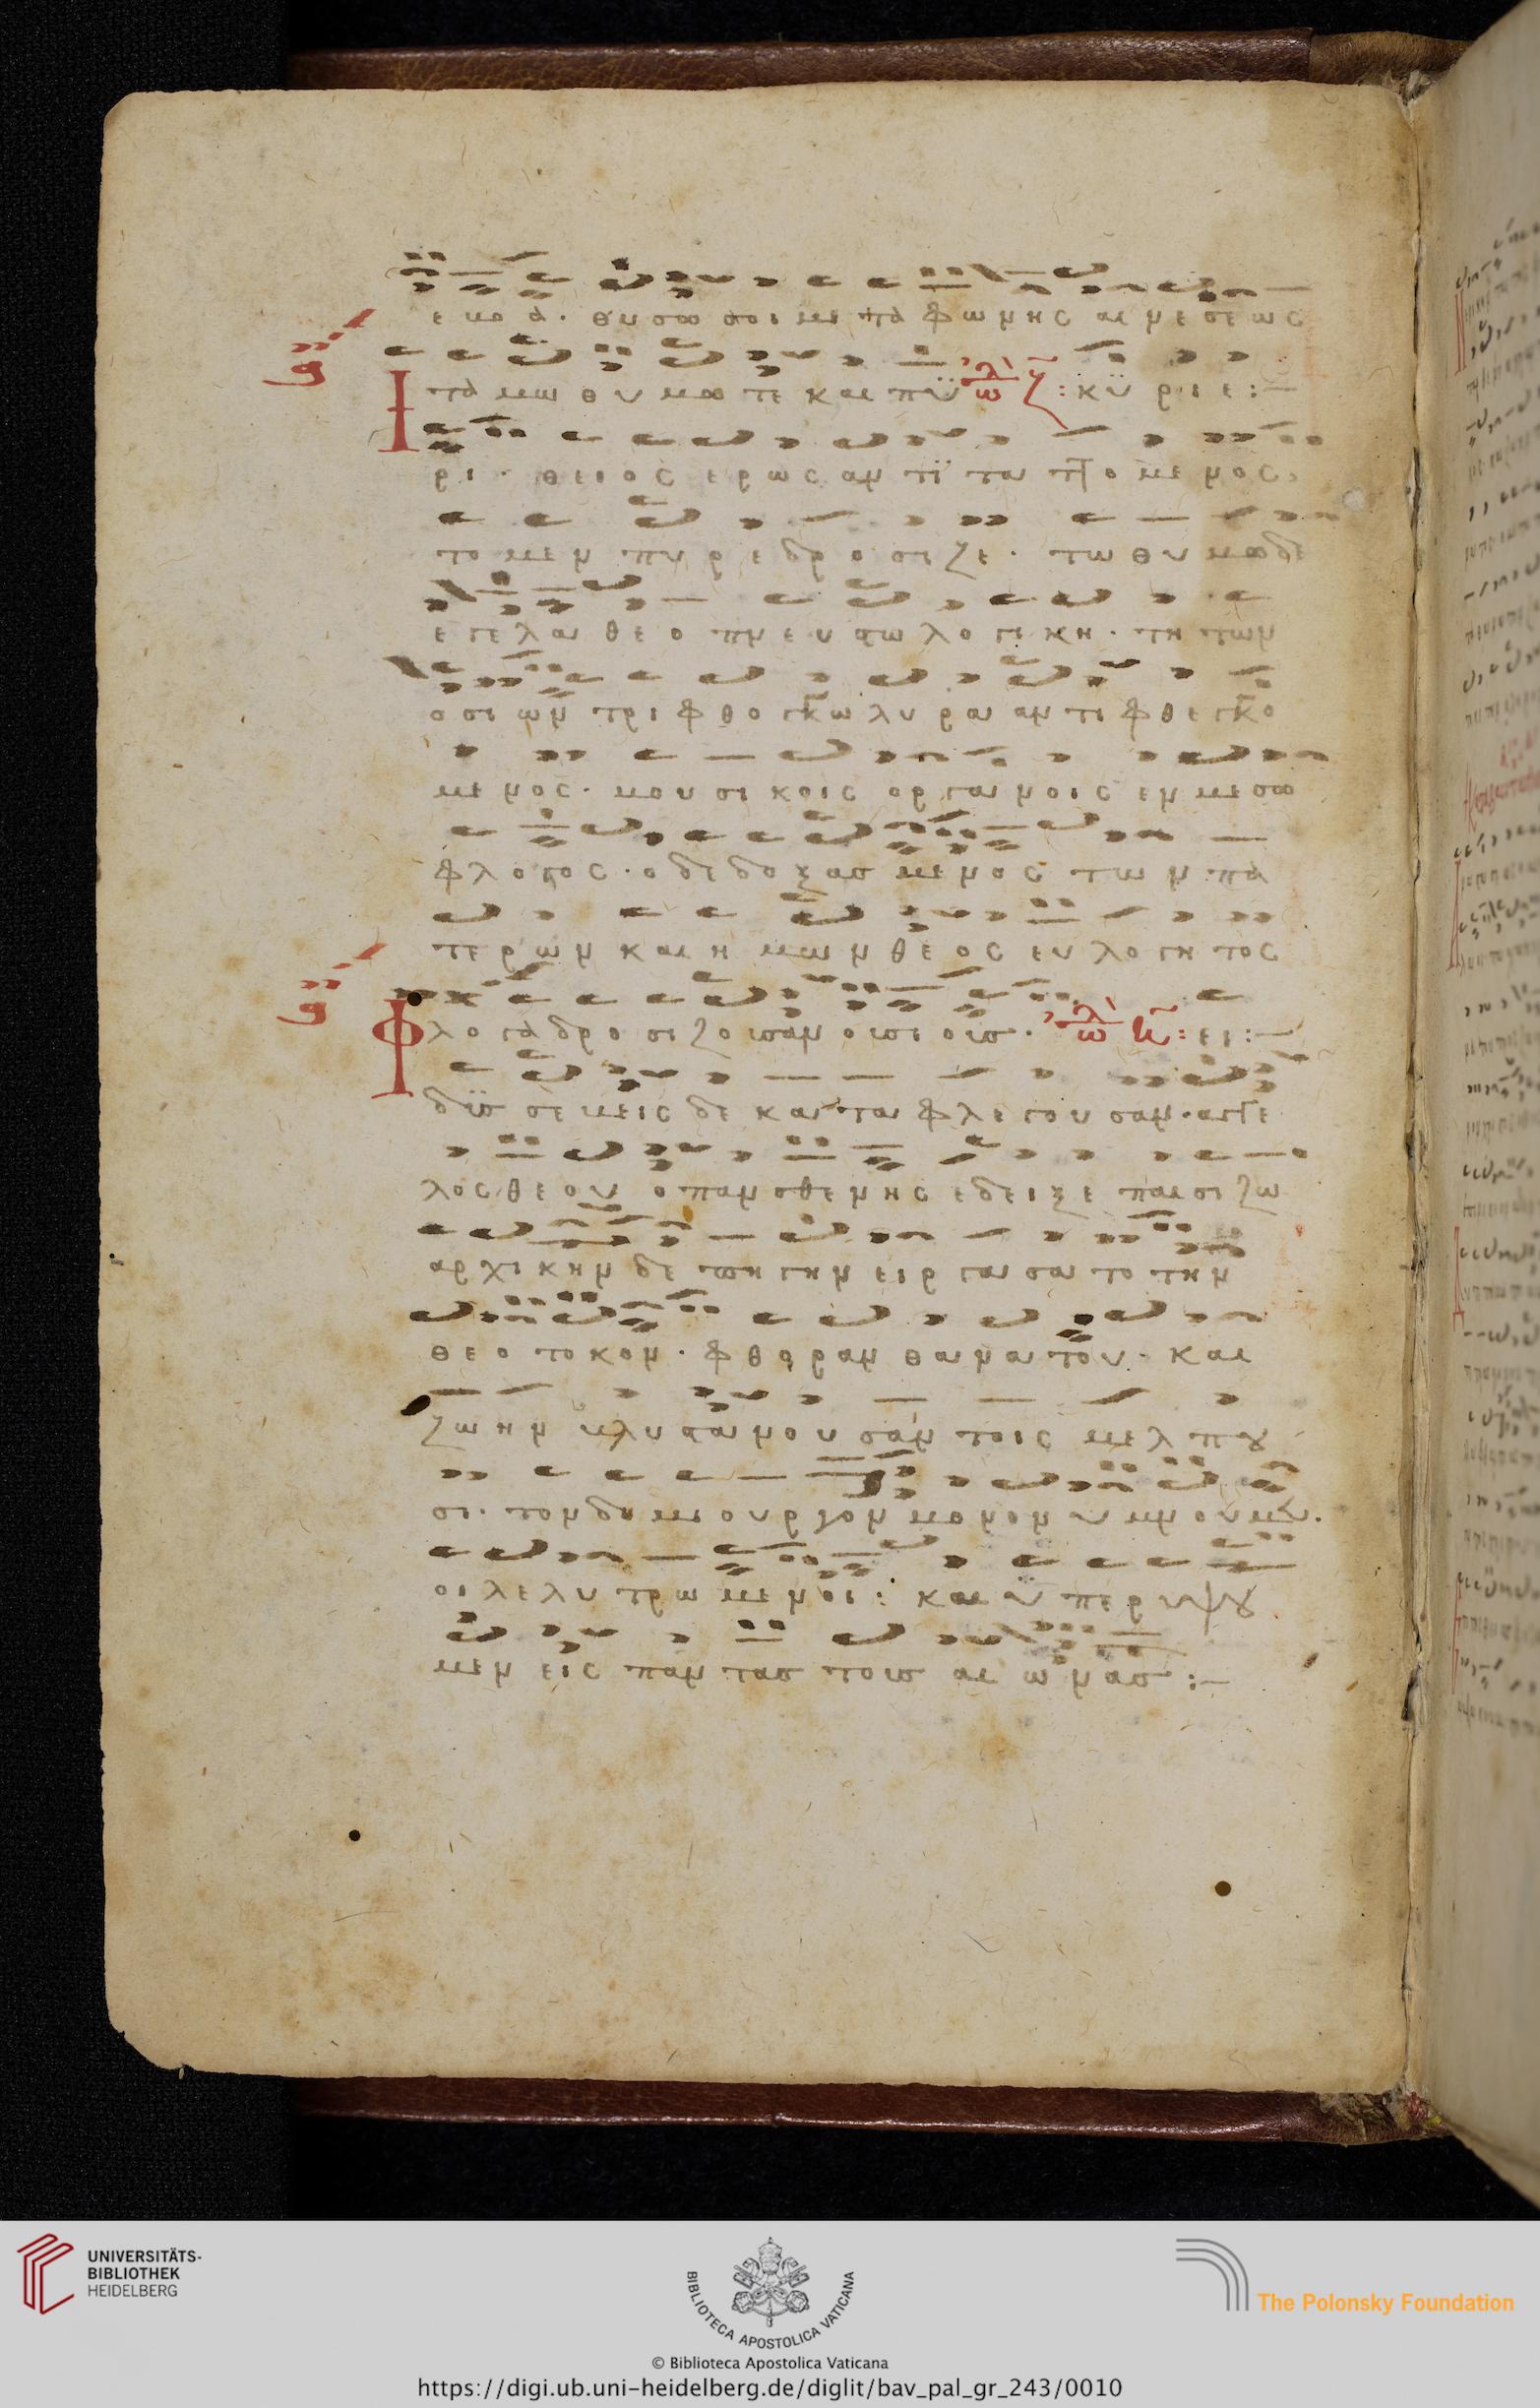 ενοσ· θυσω σοι μετα φωνης αινεσεως
Ιταμω θυμω τε και πϋ κϋριε:-
ρι· θειος ερως αντϊταττομενος,
το μεν πυρ εδροσιζε· τω θυμωδε
εγελα· θεοπνευστω λογικη· τη των
οσιων τριφθογγω λυρα αντιφθεγγο
μενος· μουσικοις οργανοις εν μεσω
φλογος· ο δεδοξασμενος των πα
τερων και ημων θεος ευλογητος
Φλογα δροσιζουσαν οσιους· ει:-
δυσσεβεις δε καταφλεγουσαν· αγγε
λος θεου ο πανσθενης εδειξε παισι ζω
αρχικην δε πηγην ειργασατο την
θεοτοκον· φθοραν θανατου· και
ζωην βλυστανουσαν τοις μελπου
σι· τον δημιουργον μονον υμνουμεν·
οι λελυτρωμενοι: και υπερυψου
μεν εις παντας τους αιωνας:-
UNIVERSITÄTS-
BIBLIOTHEK
HEIDELBERG
BIBLIOTECA APOSTOLICA VATICANA
The Polonsky Foundation
© Biblioteca Apostolica Vaticana
https://digi.ub.uni-heidelberg.de/diglit/bav_pal_gr_243/0010